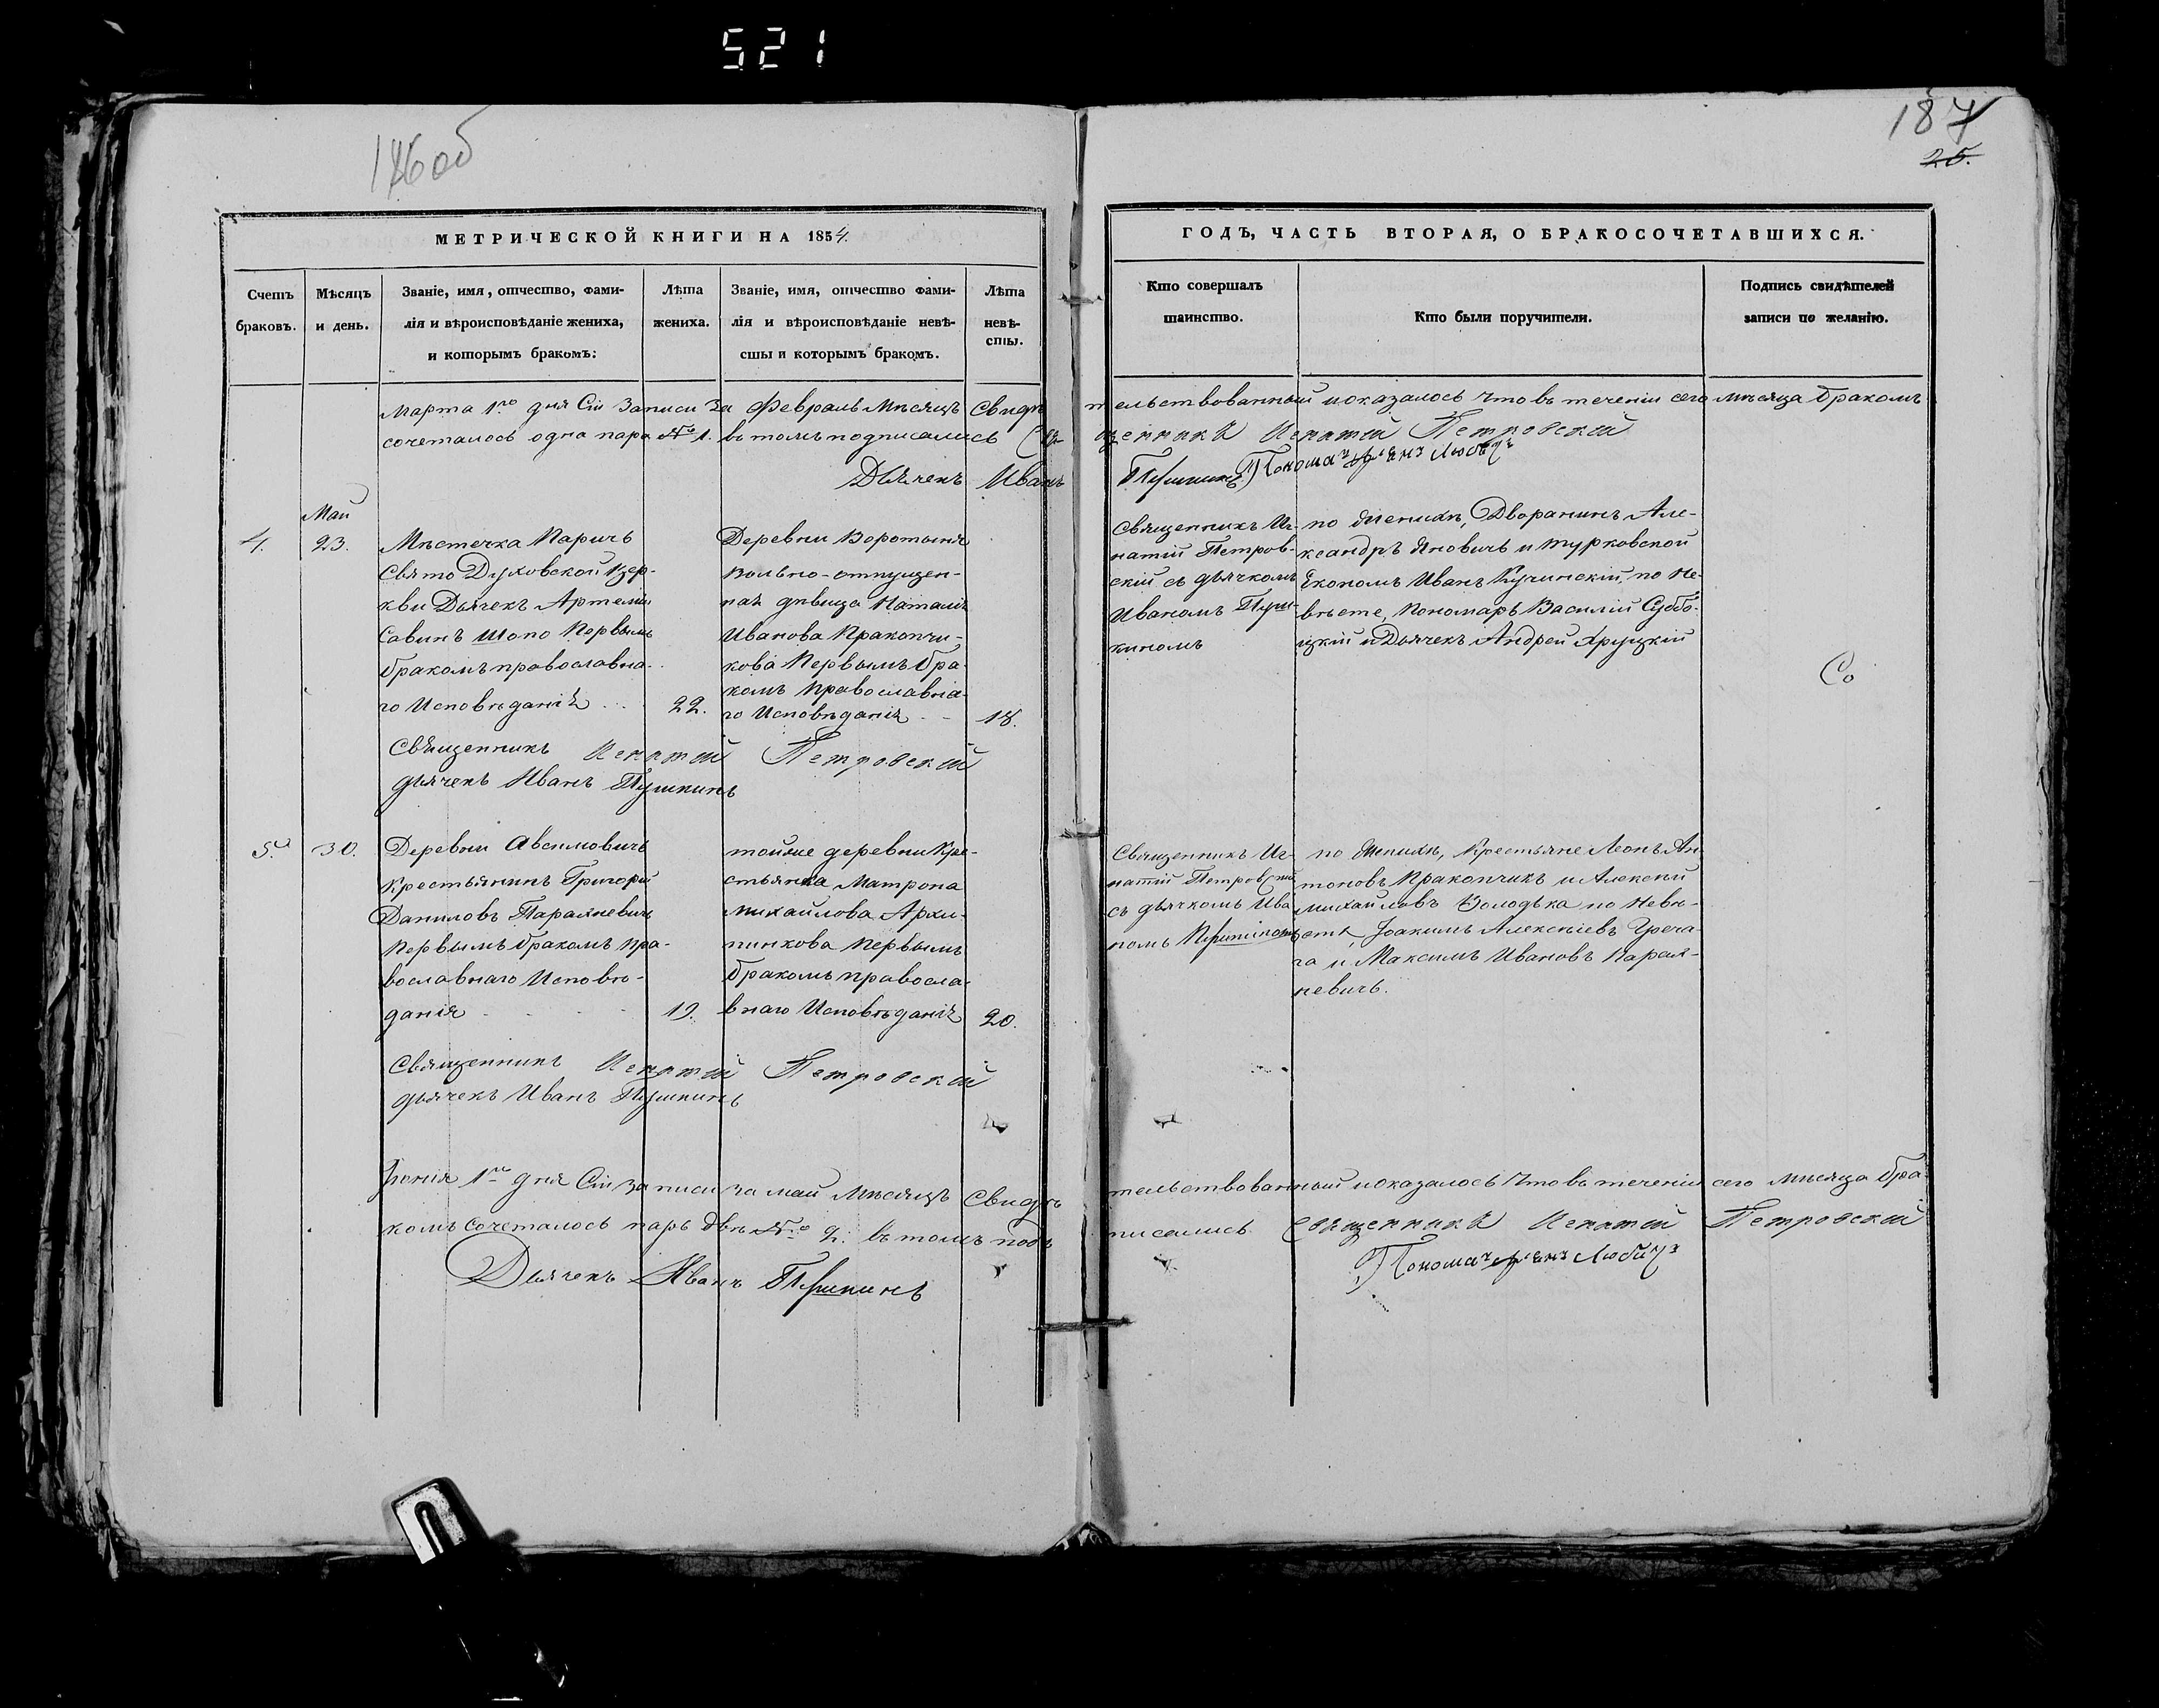 521
186 об
187
25.
МЕТРИЧЕСКОЙ КНИГИ НА 1854.
Счетъ браковъ.
Мѣсяцъ и день.
Званіе, имя, отчество, фами-
лія и вѣроисповѣданіе жениха,
и которымъ бракомъ:
Лѣта жениха.
Званіе, имя, отчество фами-
лія и вѣроисповѣданіе невѣ-
сты и которымъ бракомъ.
Лѣта невѣ-
сты.
ГОДЪ, ЧАСТЬ ВТОРАЯ, О БРАКОСОЧЕТАВШИХСЯ.
Кто совершалъ
таинство.
Кто были поручители.
Подпись свидѣтелей
записи по желанію.
Марта 1го дня Сіи Записи За Февраль Мѣсяцъ Свидѣтельствованный и оказалось что въ теченіи сего мѣсяца бракомъ
сочеталось одна пара № 1. въ томъ подписались Священникъ Игнатій Петровскій
Дьячекъ Иванъ Пушкинъ Понома
Май
4.
23.
Мѣстечка Паричъ
Свято Духовской Цер-
кви Дьячекъ Артемій
Савинъ Шопо Первымъ
бракомъ православна-
го Исповѣданія
22.
Деревни Воротыня
вольно-отпущен-
ная дѣвица Наталія
Иванова Пракопчи-
кова Первымъ бра-
комъ Православна-
го Исповѣданія
18.
Священникъ Иг-
натій Петров-
скій съ дьячкомъ
Иваномъ Пуш-
киномъ
по женихѣ, Дворанинъ Але-
ксандръ Яновичъ и Турковской
Економъ Иванъ Кучинскій, по Не-
вѣсте, Пономарь Василій Суббо-
цкій и Дьячекъ Андрей Хруцкій
Со
Священникъ Игнатій Петровскій
дьячекъ Иванъ Пушкинъ
5.
30.
Деревни Авсимовичъ
Крестьянинъ Григорій
Даниловъ Параяневичъ
Первымъ бракомъ пра-
вославнаго Исповѣ-
данія
19.
тойже деревни Кре-
стьянка Матрона
Михайлова Архи-
пинкова Первымъ
бракомъ правосла-
внаго Исповѣданія
20.
Священникъ Иг-
натій Петровскій
съ дьячкомъ Ива
номъ Пушкиномъ
по Женихѣ, Крестьяне Леонъ Ан
тоновъ Пракопчикъ и Алексѣй
Михайловъ Володька по Невѣ-
стѣ, Іоакимъ Алексѣевъ Греча-
га и Максимъ Ивановъ Парая-
невичъ.
Священникъ Игнатій Петровскій
дьячекъ Иванъ Пушкинъ
Іюнія 1го дня Сіи записи за май Мѣсяцъ Свидѣтельствованный и оказалось что въ теченіи сего мѣсяца бра-
комъ сочеталось паръ двѣ № 2. въ томъ подписались Священникъ Игнатій Петровскій
Дьячекъ Иванъ Пушкинъ Понома